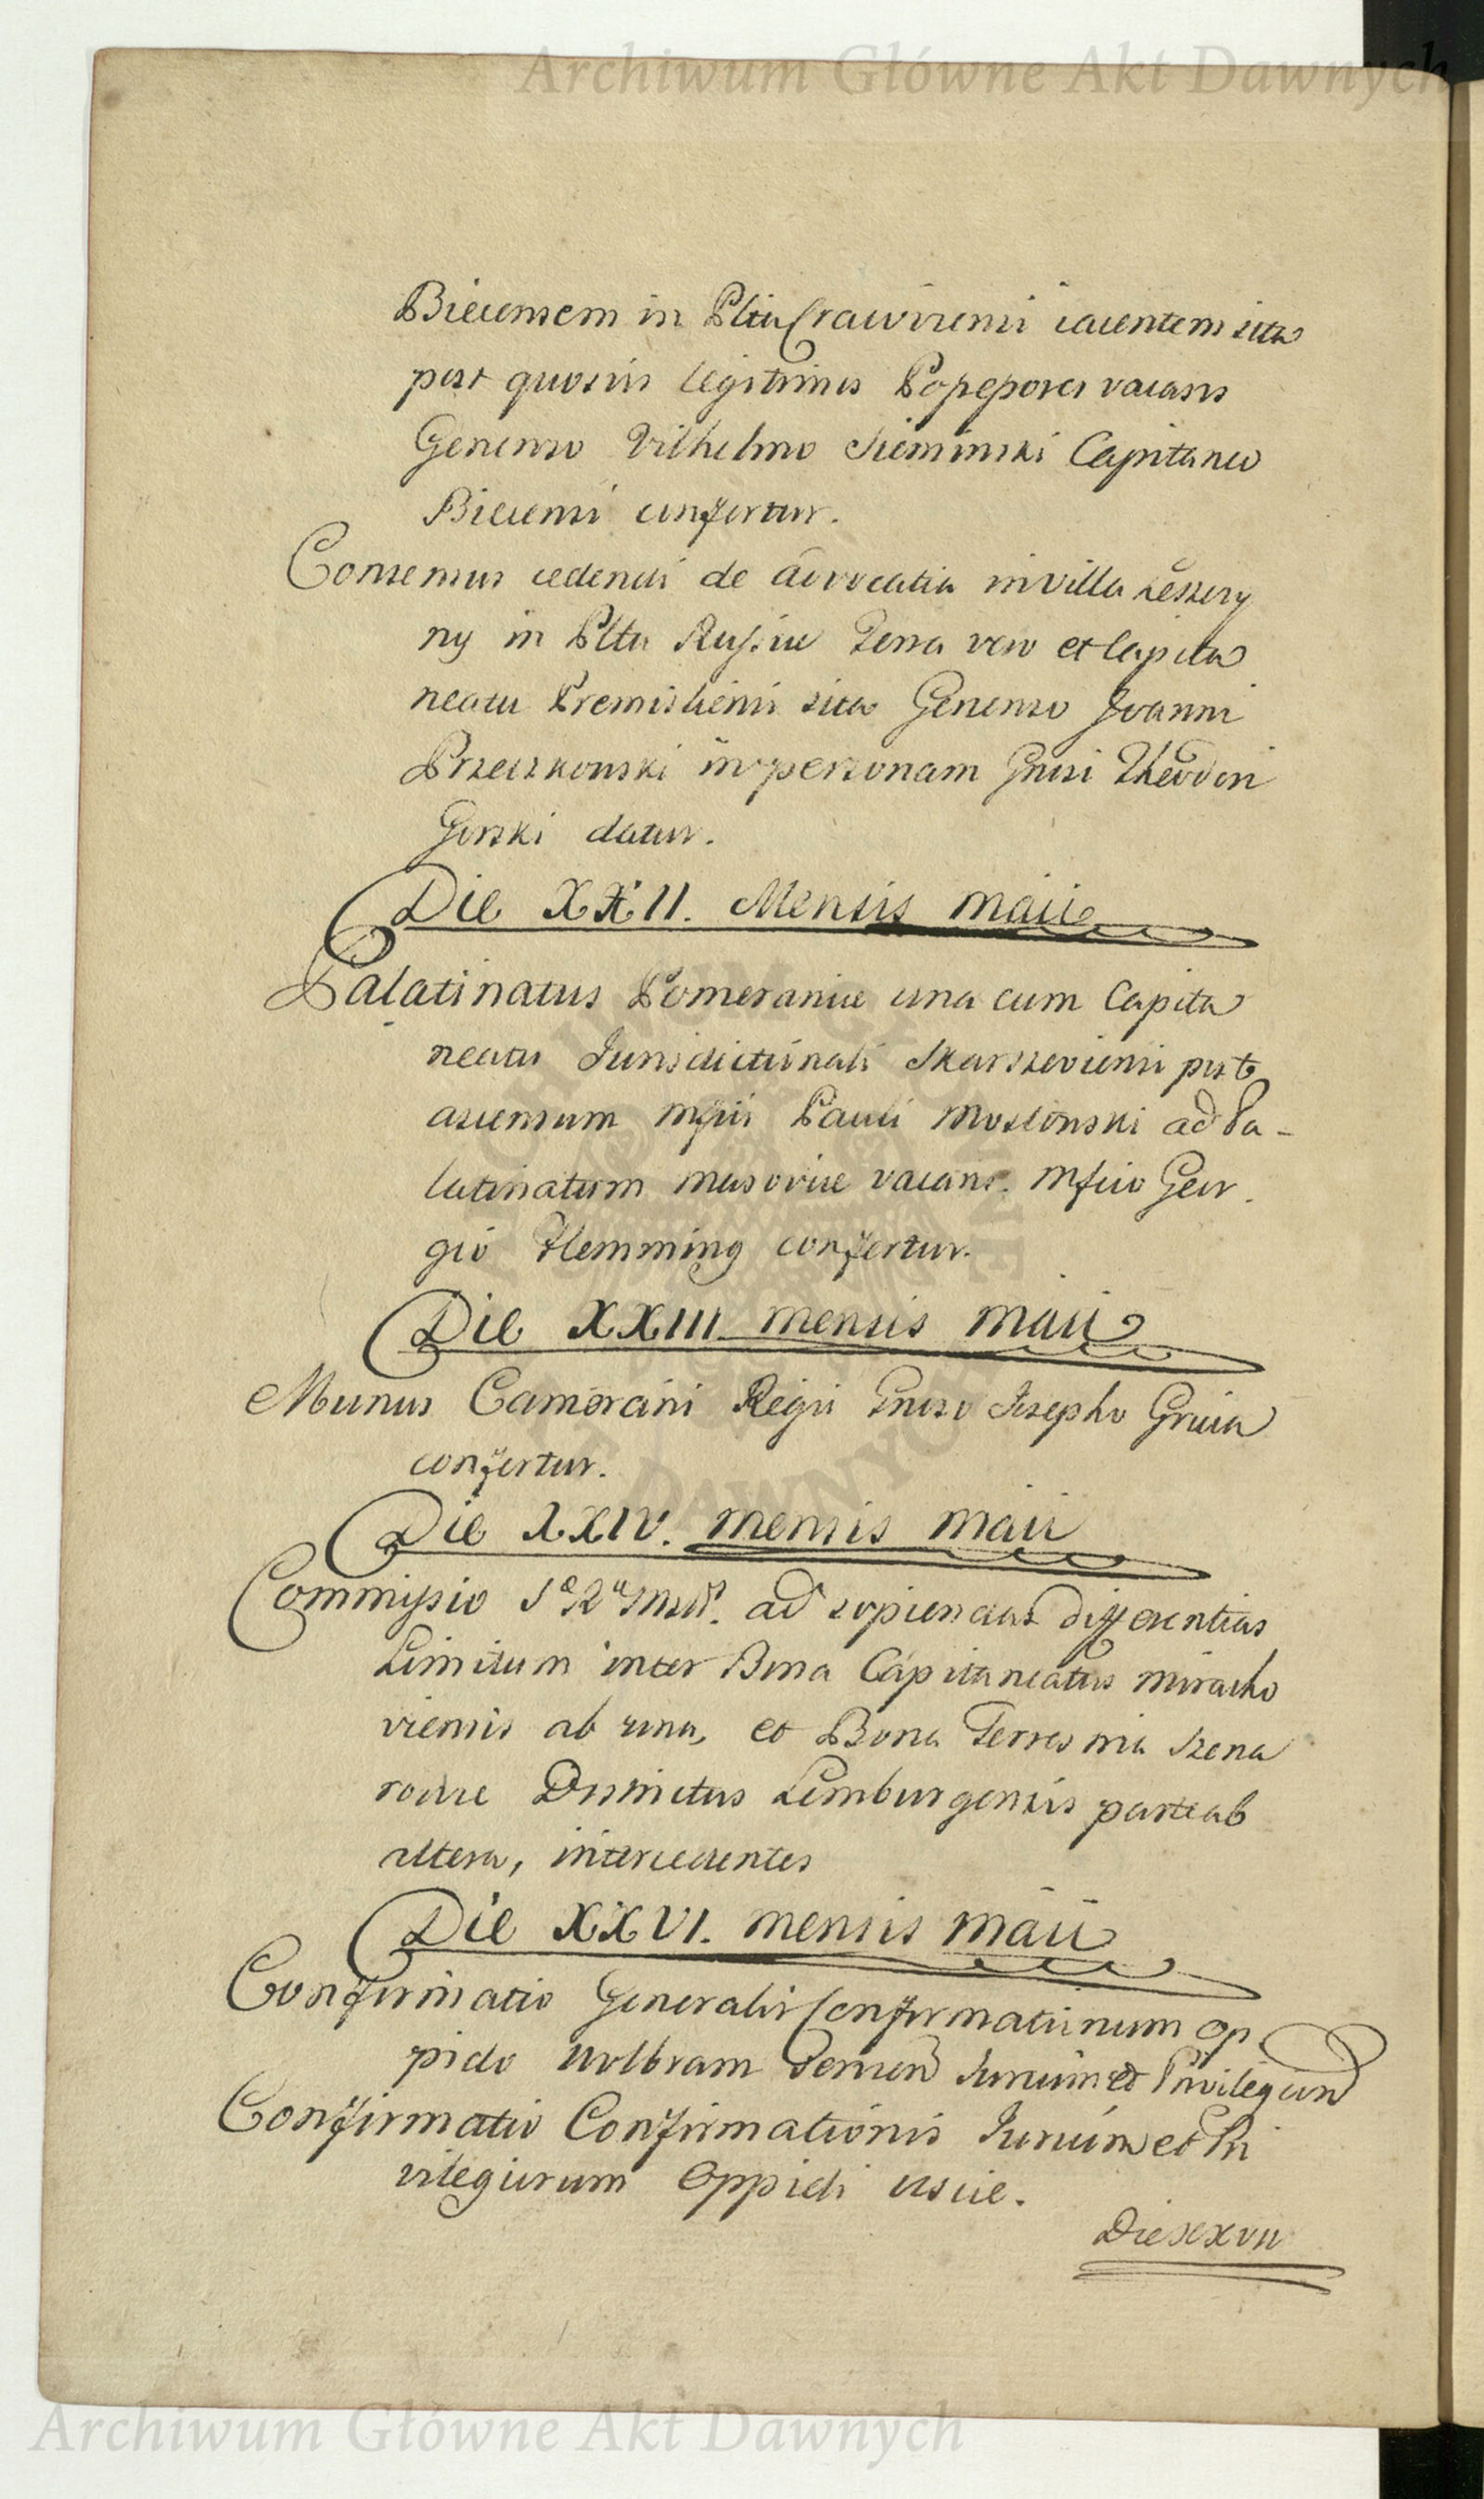 Archiwum Główne Akt Dawnych
Biecensem in Pltu Cracoviensi iacentem sita
post quosvis legitimos Possessores vacans
Generoso Vilhelmo Sieminski Capitaneo
Biecensi confertur.
Consensus cedendi de advocatia in villa
ny in Pltu Russiae Terra vero et Capita
neatu Premisliensi sita Generoso Joanni
Przeczkowski in personam Gnrsi Theodori
Gorski datur.
Die XXII. Mensis Maii
Palatinatus Pomeraniae una cum Capita
neatu Jurisdictionali Skarszeviensi post
ascensum Mfici Pauli Mostowski ad Pa-
latinatum Masoviae vacans. Mfico Geor
gio Flemming confertur.
Die XXIII mensis Maii
Munus Camerarii Regii Gnrso Josepho
confertur.
Die XXIV. mensis Maii
Commissio ad sopiendas differentias
Limitum inter Bona Capitaneatus Miracho
viensis ab una, et Bona Terrestria
Districtus Lemburgensis parte ab
altera, intercedentes
Die XXVI. mensis Maii
Confirmatio Generalis Confirmationum Op
pido Wolbram Jurium et Privilegiorum
Confirmatio Confirmationis Jurium et Pri
vilegiorum Oppidi Uscie.
Die XXVII
Archiwum Główne Akt Dawnych